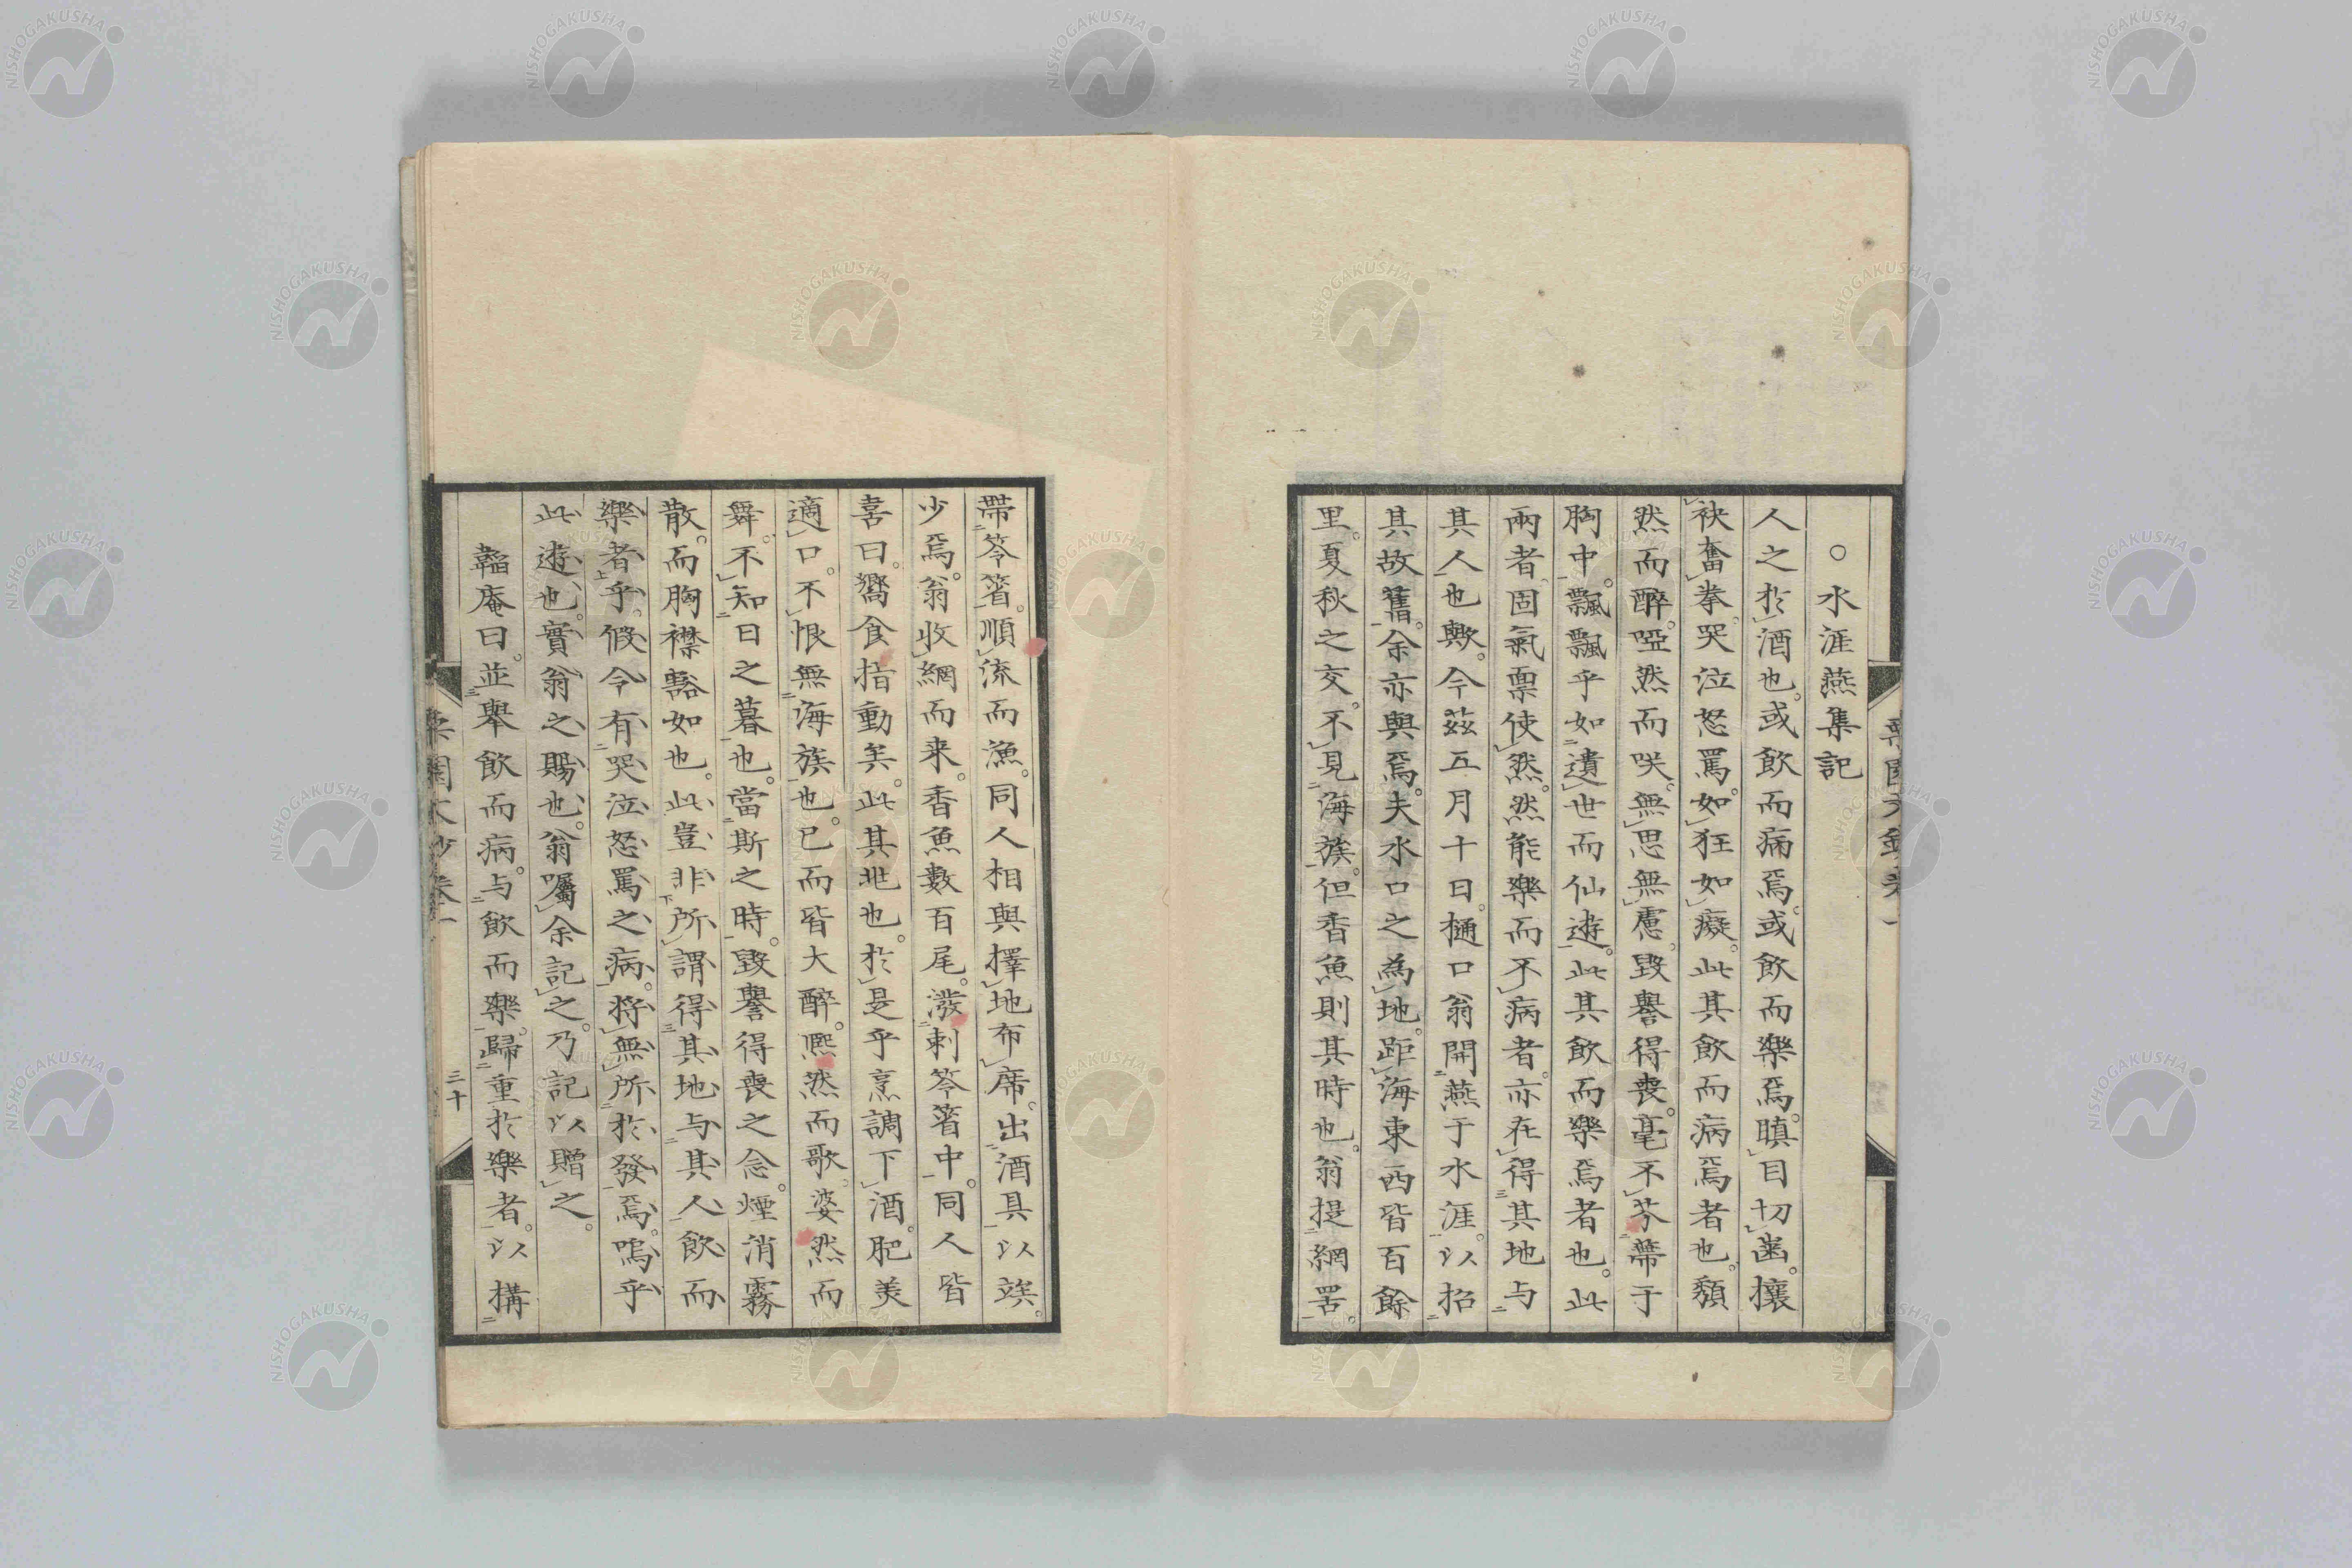 ○水涯燕集記
人之於酒也。或飲而病焉。或飲而樂焉。瞋目切齒。攘
袂奮拳。哭泣怒罵。如狂如癡。此其飲而病焉者也。頽
然而醉。啞然而咲。無思無慮。毀譽得喪。毫不芥蔕于
胸中。飄飄乎如遺世而仙遊。此其飲而樂焉者也。此
兩者。固氣稟使然。然能樂而不病者。亦在得其地与
其人也歟。今茲五月十日。樋口翁開燕于水涯。以招
其故舊。余亦與焉。夫水口之為地。距海東西皆百餘
里。夏秋之交。不見海族。但香魚則其時也。翁提網罟。
帶笭箵。順流而漁。同人相與擇地布席。出酒具以竢。
少焉。翁收網而来。香魚數百尾。潑剌笭箵中。同人皆
喜曰。嚮食指動矣。此其兆也。於是乎烹調下酒。肥美
適口。不恨無海族也。已而皆大醉。熈然而歌。婆然而
舞。不知日之暮也。當斯之時。毀譽得喪之念。煙消霧
散。而胸襟豁如也。此豈非所謂得其地与其人。飲而
樂者乎。假令有哭泣怒罵之病。將無所於發焉。嗚乎
此遊也。實翁之賜也。翁囑余記之。乃記以贈之。
韜庵曰。並舉飲而病。与飲而樂。歸重於樂者。以構
三十
NISHOGAKUSHA